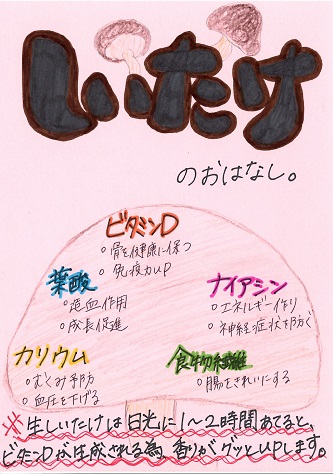 しいたけ
のおはなし。
ビタミンD
○骨を健康に保つ
○免疫力UP
葉酸
○造血作用
○成長促進
ナイアシン
○エネルギー作り
○神経症状を防ぐ
カリウム
○むくみ予防
○血圧を下げる
食物繊維
○腸をきれいにする
※生しいたけは日光に1〜2時間あてると、
ビタミンDが生成される為、香りがグッとUPします。